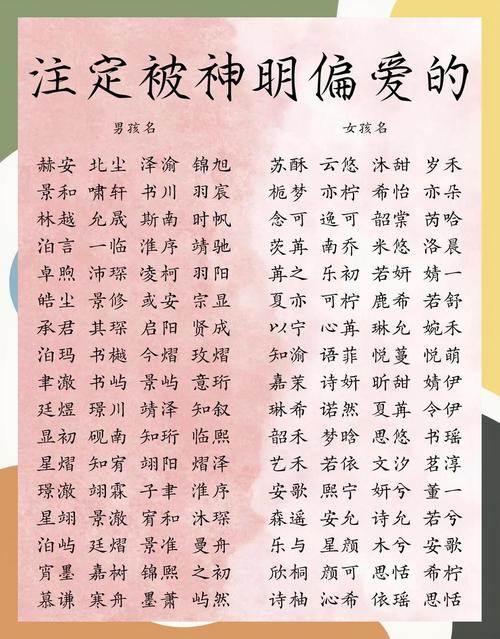 注定被神明偏爱的
男孩名 女孩名
赫安 北尘 泽渝 锦旭 苏酥 云悠 沐甜 岁禾
景和 啸轩 书川 羽宸 栀梦 亦柠 希怡 亦朵
林越 允晟 斯南 时帆 念可 逸可 韵棠 芮哈
泊言 一临 淮序 靖驰 茨苒 南乔 米悠 洛晨
卓煦 沛琛 凌柯 羽阳 苒之 乐初 若妍 婧一
皓尘 景修 或安 宗显 夏亦 可柠 鹿希 若舒
承君 其琛 启阳 贤成 以宁 心苒 琳允 婉禾
泊玛 书樾 今熠 玫熠 知渝 语菲 悦蔓 悦萌
聿澈 书屿 景屿 意珩 嘉茉 诗妍 昕甜 婧伊
廷煜 璟川 靖泽 知叙 琳希 诺然 夏苒 令伊
显初 砚南 知珩 临熙 韶禾 梦晗 思悠 书瑶
星熠 知宥 翊阳 熠泽 艺禾 若依 文汐 茗淳
璟澈 翊霖 子聿 淮序 安歌 熙宁 妍兮 董一
星翊 景澈 宥和 沐琛 森遥 安允 诗允 若兮
泊屿 廷熠 景淮 曼舟 乐与 星颜 木兮 安歌
宵墨 嘉树 锦熙 之初 欣桐 颜可 思恬 希柠
慕谦 寒舟 墨萧 屿然 诗柚 沁希 依瑶 思恬